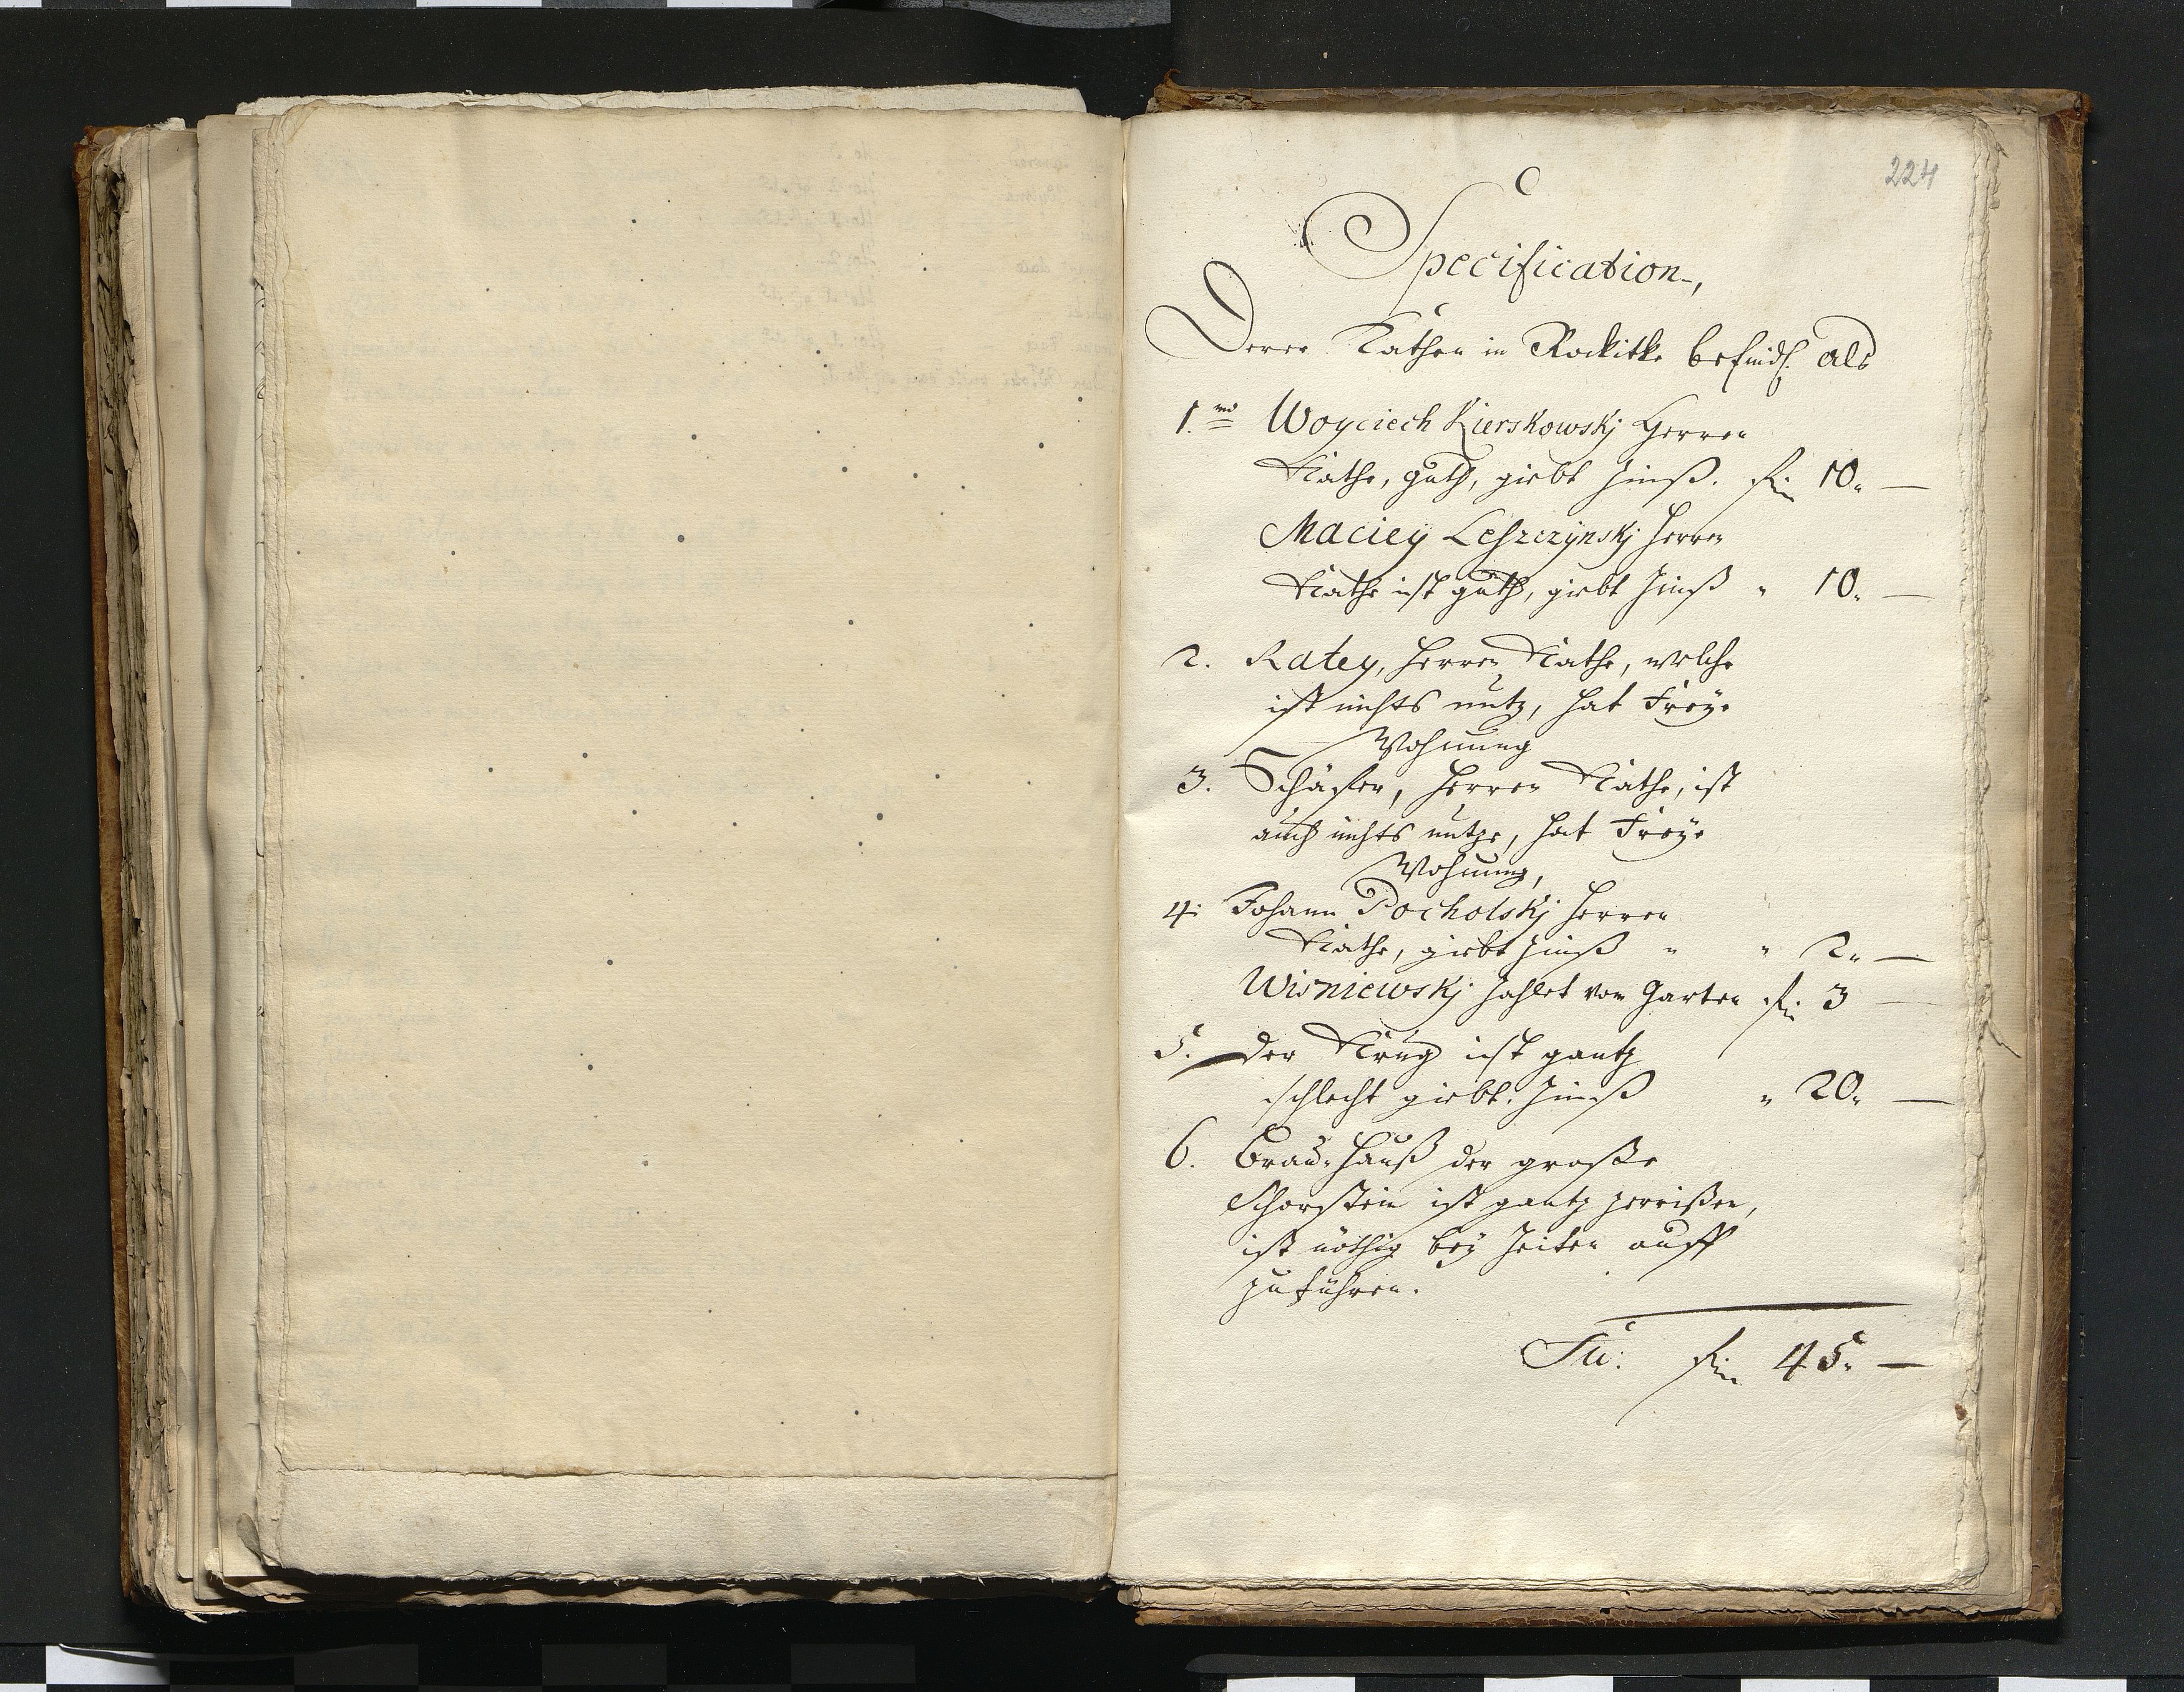 224
Specification,
Derer Kathen in Rockitke befindl. als
1.mo Woyciech Kierskowskj Herren
Kathe, guth, giebt Zinß. fl. 10. —
Maciey Leszczynskj Herren
Kathe ist guth, giebt Zinß " 10. —
2. Ratey, Herren Kathe, welche
ist nichts nutz, hat Freye
Wohnung
3. Schäfer, Herren Kathe, ist
auch nichts nutze, hat Freye
Wohnung,
4. Johann Pocholskj Herren
Kathe, giebt Zinß " " 2. —
Wisniewskj Zahlet vom Garten fl. 3 —
5. Der Krug ist gantz
schlecht giebt Zinß " 20. —
6. Brau-Hauß der große
Schorstein ist gantz zerrißen,
ist nöthig bey Zeiten auff
zuführen.
Su: fl. 45. —